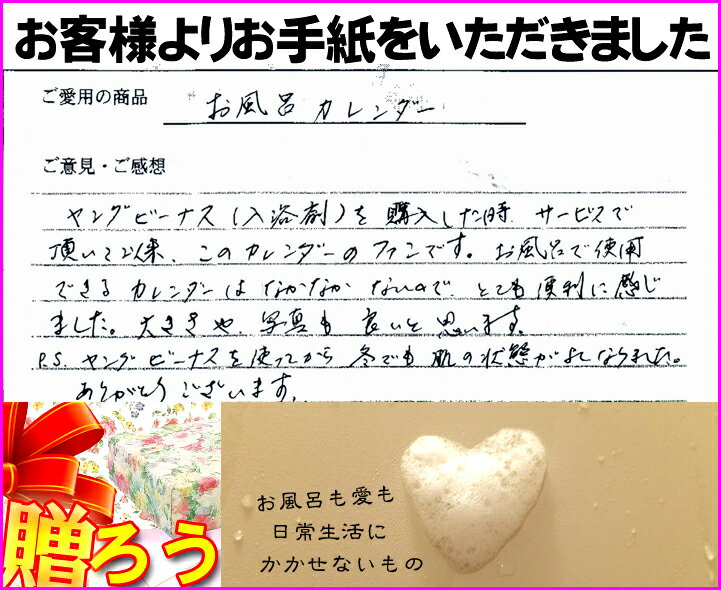 お客様よりお手紙をいただきました
ご愛用の商品 お風呂カレンダー
ご意見・ご感想
ヤングビーナス(入浴剤)を購入した時、サービスで
頂いて以来、このカレンダーのファンです。お風呂で使用
できるカレンダーはなかなかないので、とても便利に感じ
ました。大きさや、写真も良いと思います。
P.S. ヤングビーナスを使ってから冬でも肌の状態がよくなりました。
ありがとうございます。
贈ろう
お風呂も愛も
日常生活に
かかせないもの